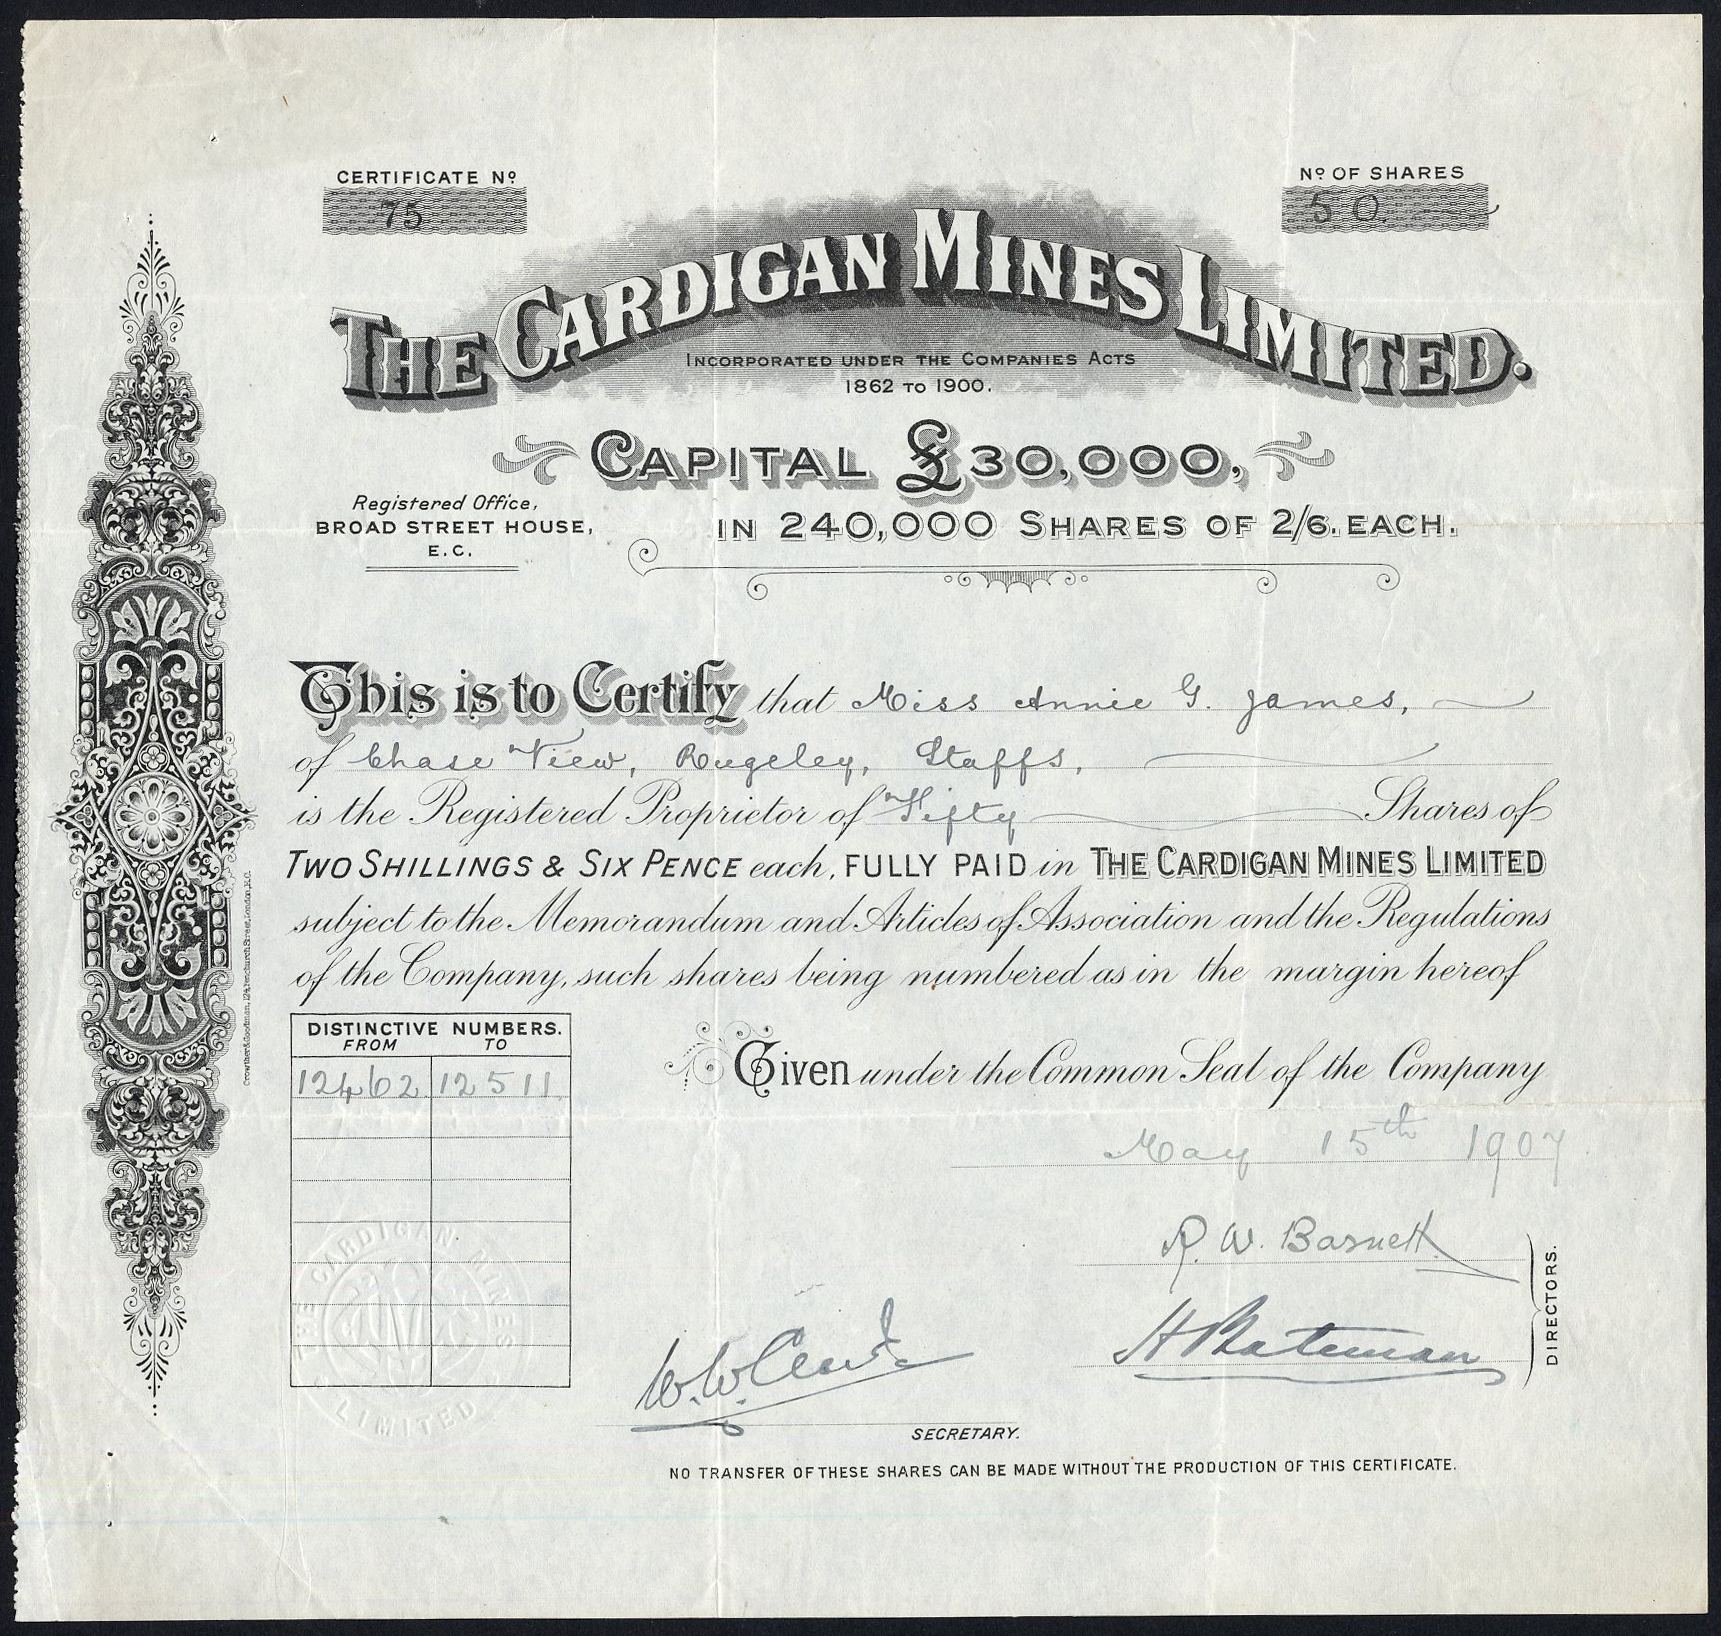 CERTIFICATE Nº
75
Nº OF SHARES
50
THE CARDIGAN MINES LIMITED.
INCORPORATED UNDER THE COMPANIES ACTS
1862 TO 1900.
CAPITAL £30,000,
IN 240,000 SHARES OF 2/6. EACH.
Registered Office,
BROAD STREET HOUSE,
E.C.
This is to Certify that Miss Annie G. James,
of Chase View, Rugeley, Staffs,
is the Registered Proprietor of Fifty Shares of
TWO SHILLINGS & SIX PENCE each, FULLY PAID in THE CARDIGAN MINES LIMITED
subject to the Memorandum and Articles of Association and the Regulations
of the Company, such shares being numbered as in the margin hereof
DISTINCTIVE NUMBERS.
FROM TO
12462 12511
Given under the Common Seal of the Company
May 15th 1907
R. W. Barnett
H Bateman
DIRECTORS.
W. W.
SECRETARY.
NO TRANSFER OF THESE SHARES CAN BE MADE WITHOUT THE PRODUCTION OF THIS CERTIFICATE.
THE CARDIGAN MINES LIMITED
Crowther & Goodman, 124, Fenchurch Street, London, E.C.